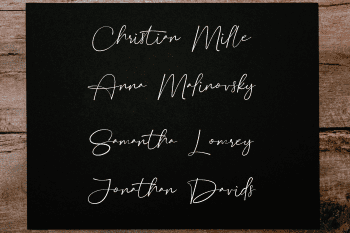 Christian Mille
Anna Malinovsky
Samantha Lomrey
Jonathan Davids